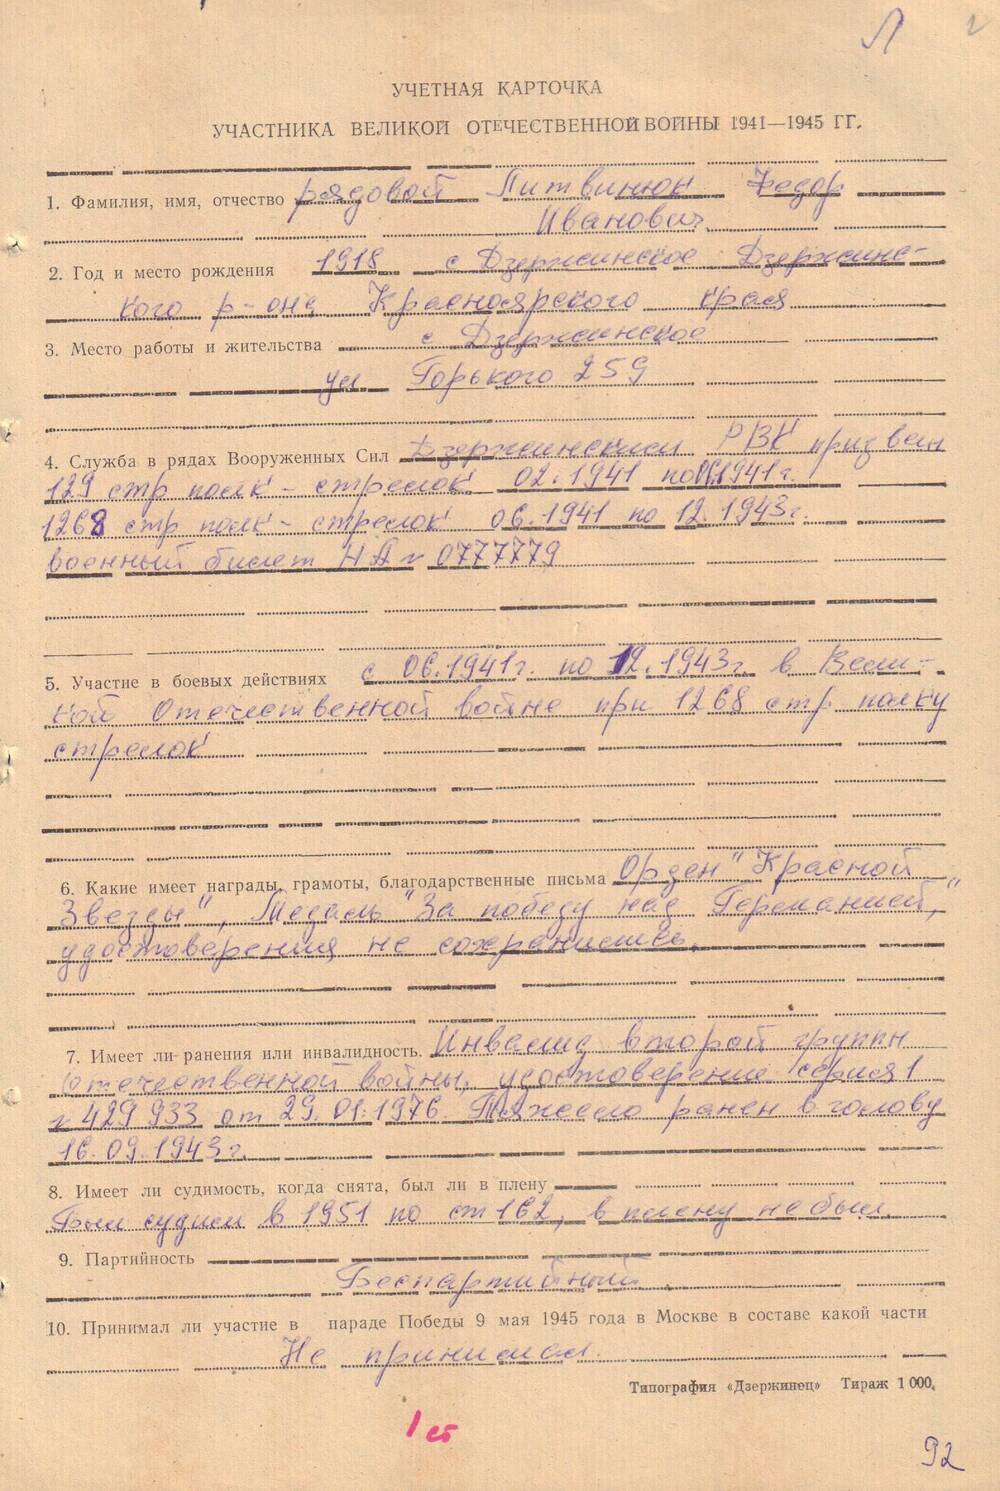 Л
УЧЕТНАЯ КАРТОЧКА
УЧАСТНИКА ВЕЛИКОЙ ОТЕЧЕСТВЕННОЙ ВОЙНЫ 1941—1945 ГГ.
1. Фамилия, имя, отчество рядовой Литвинюк Федор
Иванович
2. Год и место рождения 1918 с Дзержинское Дзержинс-
кого р-она Красноярского края
3. Место работы и жительства с Дзержинское
ул Горького 259
4. Служба в рядах Вооруженных Сил Дзержинским РВК призван
129 стр полк - стрелок 02.1941 по 1941г.
1268 стр полк - стрелок 06.1941 по 12.1943г.
военный билет НА № 0777779
5. Участие в боевых действиях с 06.1941г. по 12.1943г. в Вели-
кой Отечественной войне при 1268 стр. полку
стрелок
6. Какие имеет награды, грамоты, благодарственные письма Орден "Красной
Звезды", Медаль "За победу над Германией",
удостоверения не сохранились.
7. Имеет ли ранения или инвалидность. Инвалид второй группы
Отечественной войны, удостоверение серия 1
№ 429 933 от 29.01.1976. Тяжело ранен в голову
16.09.1943г.
8. Имеет ли судимость, когда снята, был ли в плену
Был судим в 1951 по ст 162, в плену не был.
9. Партийность
Беспартийный
10. Принимал ли участие в параде Победы 9 мая 1945 года в Москве в составе какой части
Не принимал.
Типография «Дзержинец» Тираж 1 000.
1 ст
92